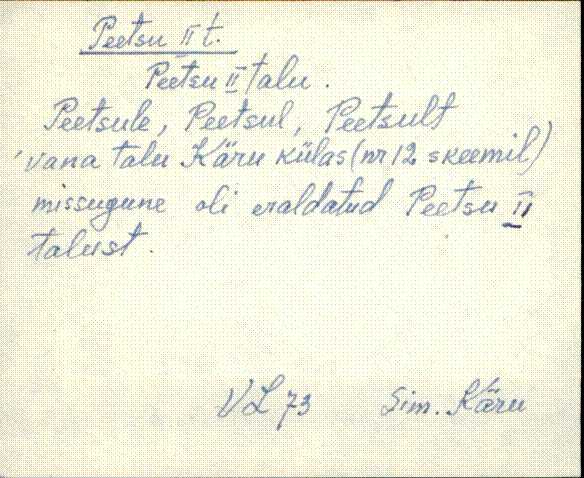 Peetsu II t.
Peetsu II talu.
Peetsule, Peetsul, Peetsult
vana talu Käru külas (nr 12 skeemil)
missugune oli eraldatud Peetsu II
talust.
VL 73 Sim. Käru